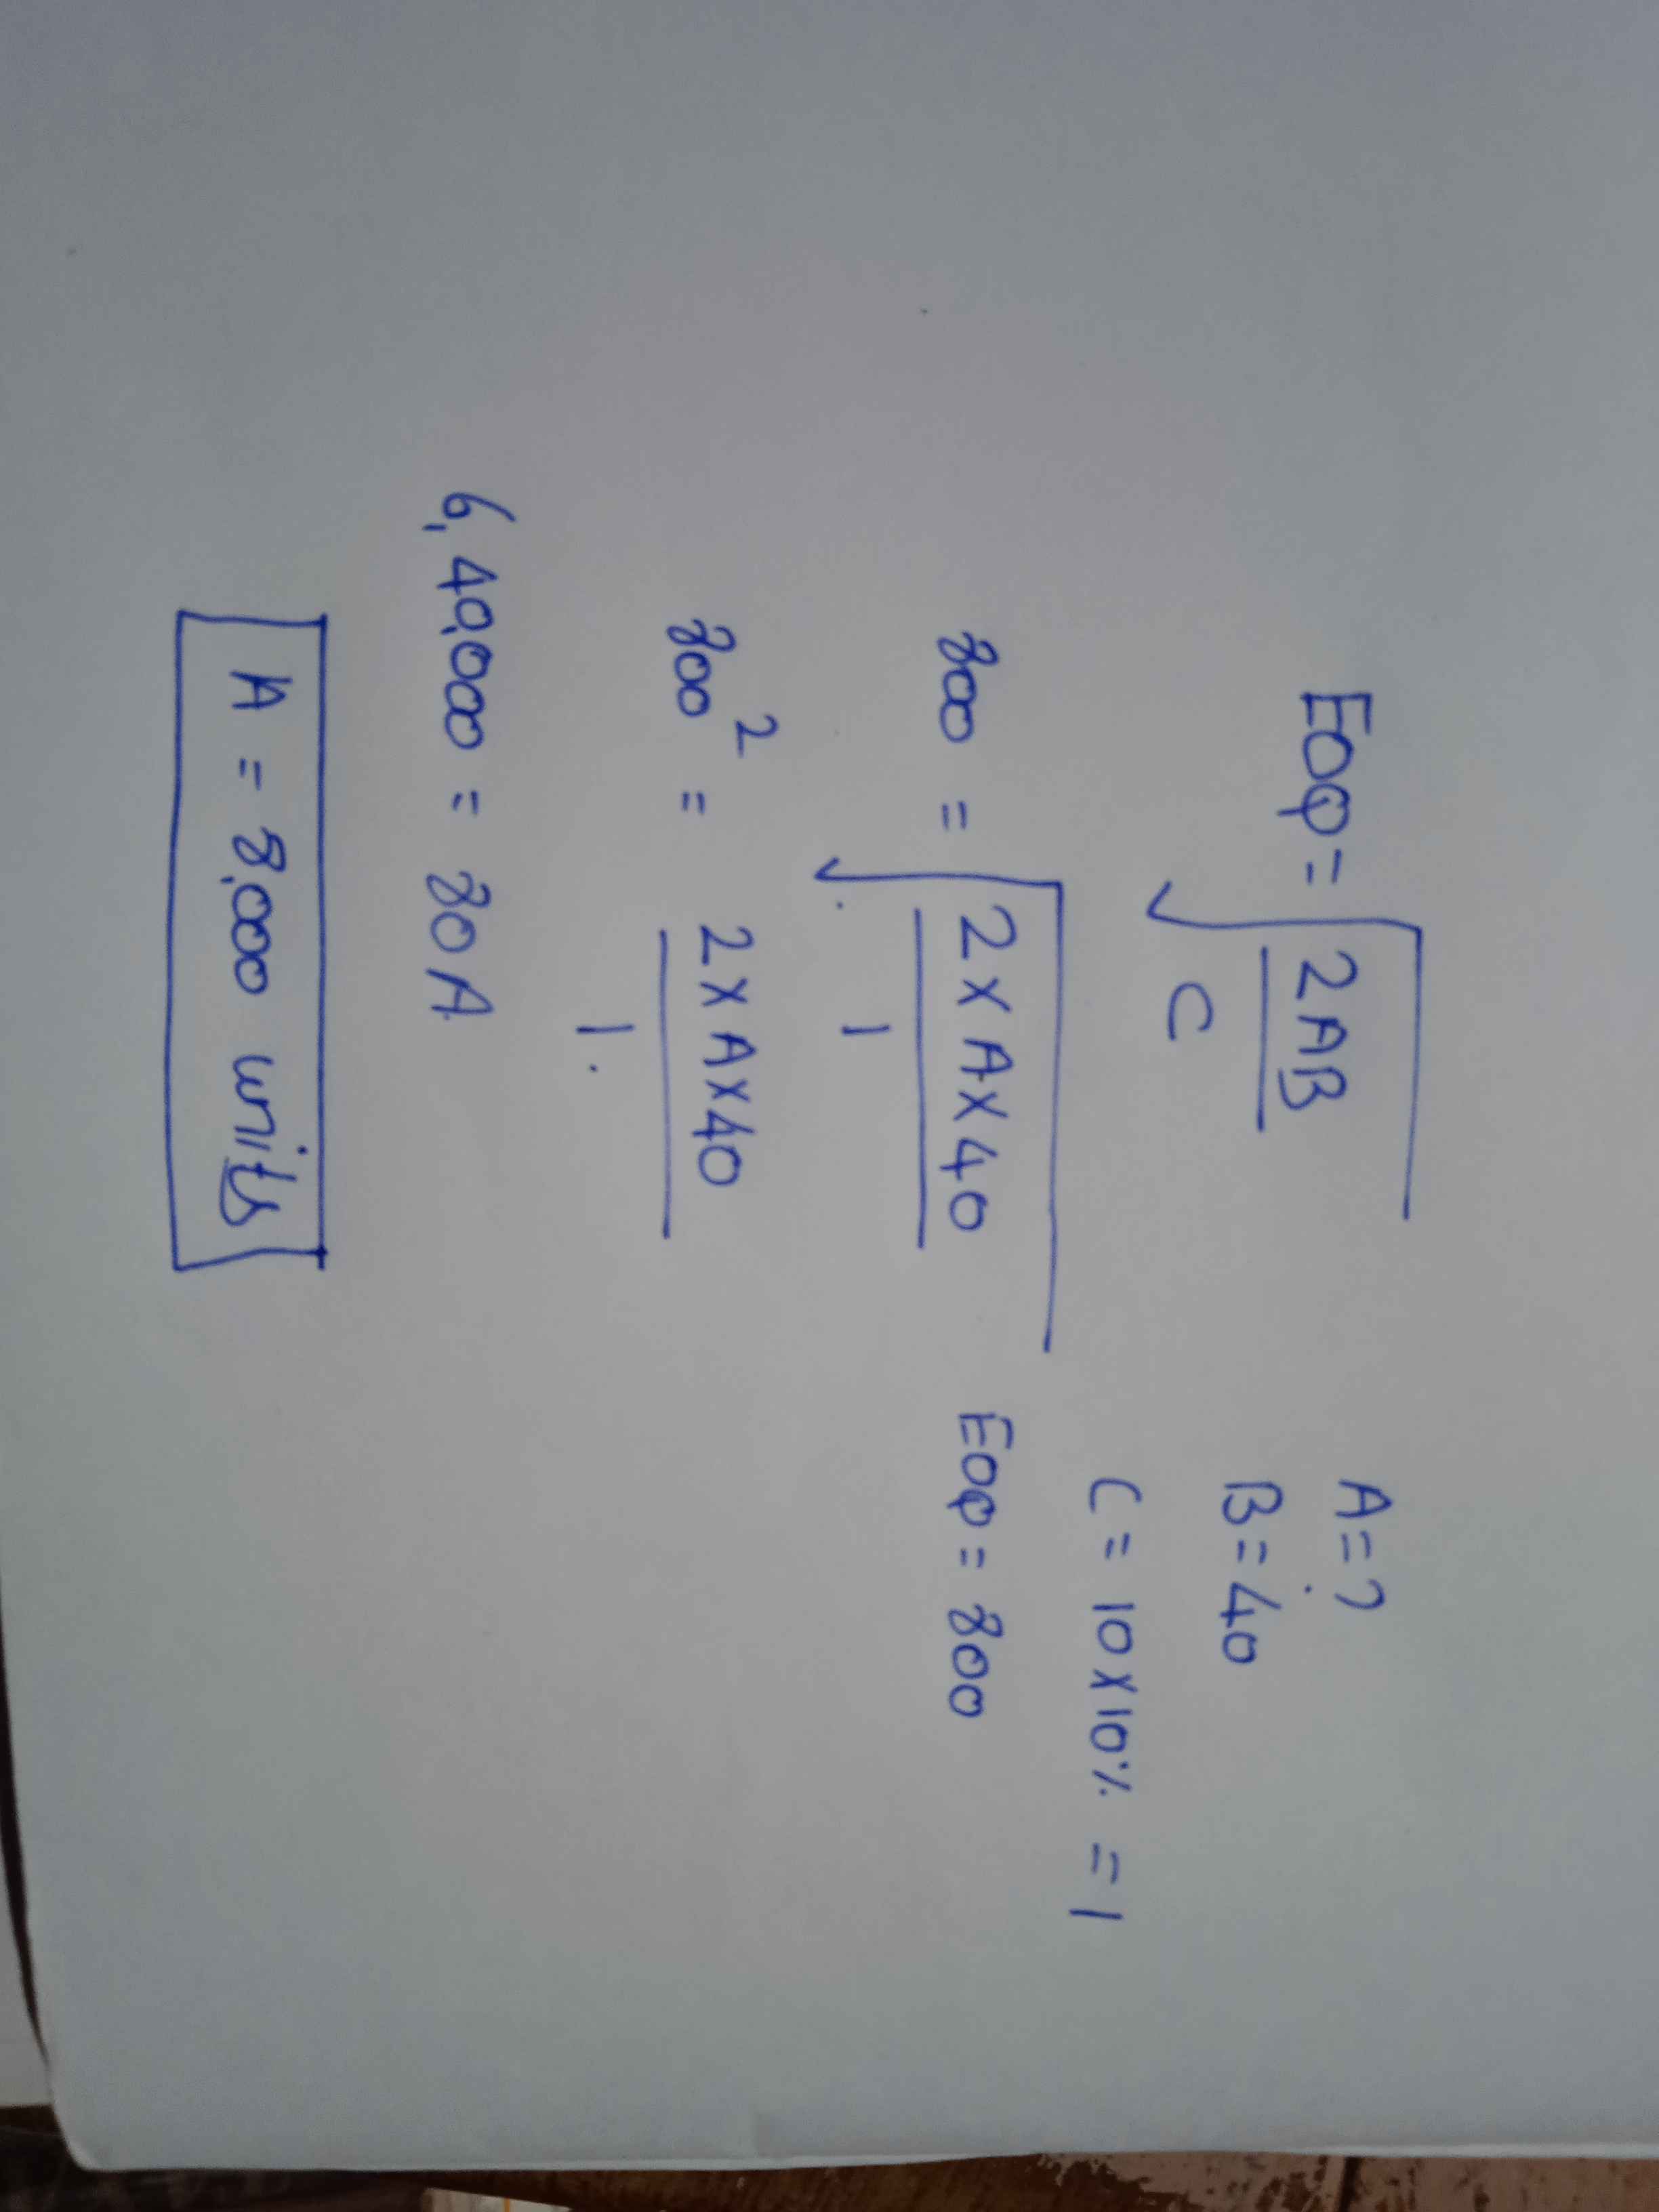 EOQ = √2AB
C
A = ?
B = 40
C = 10 x 10% = 1
EOQ = 800
800 = √2 x A x 40
1
800² = 2 x A x 40
1.
6,40,000 = 80A
A = 8,000 units